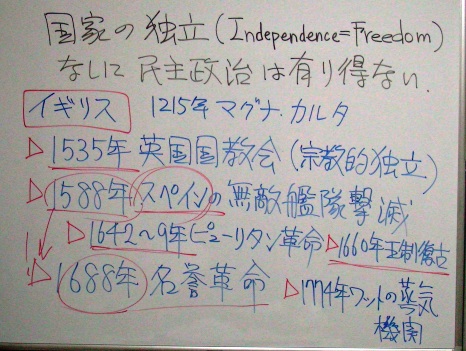 国家の独立(Independence=Freedom)
なしに民主政治は有り得ない.
イギリス 1215年マグナ・カルタ
▷1535年英国国教会(宗教的独立)
▷1588年スペインの無敵艦隊撃滅
▷1642~9年ピューリタン革命 ▷1660年王制復古
1688年名誉革命 ▷1774年ワットの蒸気
機関